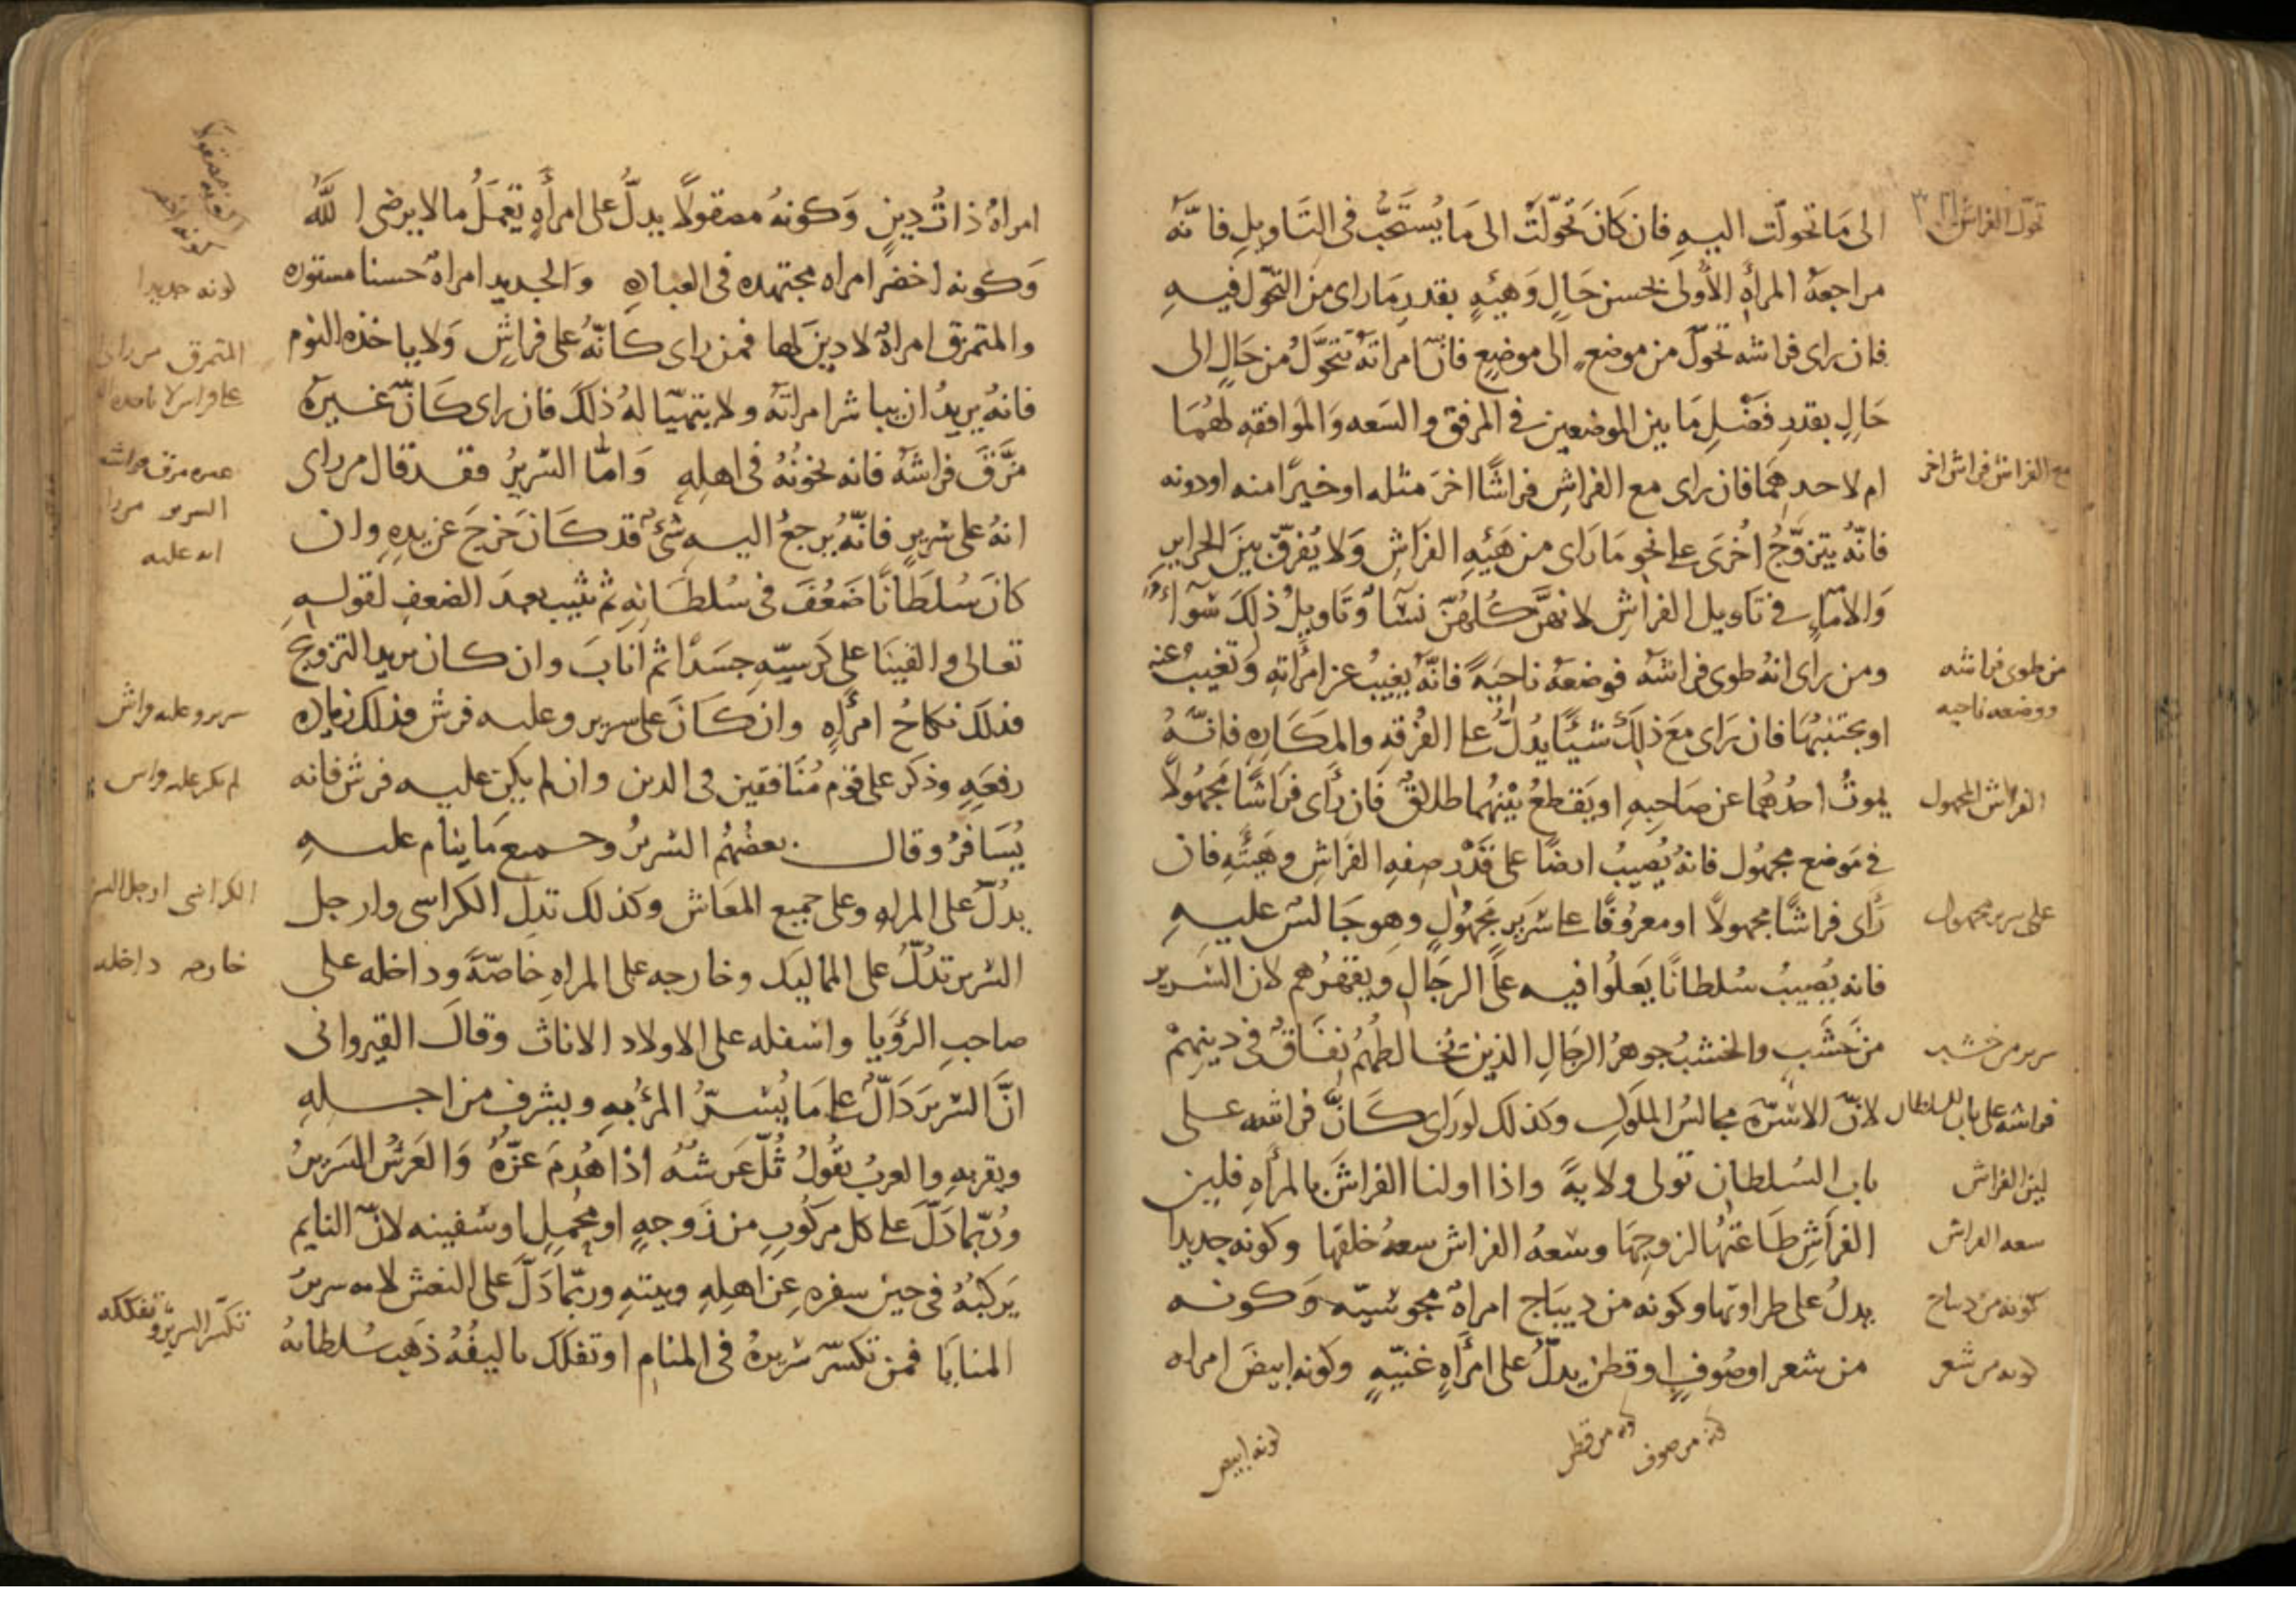 الى ما تحولت اليه فان كان تحولت الى ما يستحب فى التاويل فانه
مراجعة المرأة الأولى بحسن حال وهيئة بقدر ما راى من التحول فيه
فان راى فراشه تحول من موضع الى موضع فان امراته تتحول من حال الى
حال بقدر فضل ما بين الموضعين فى المرفق والسعه والموافقه لهما
ام لاحدهما فان راى مع الفراش فراشا اخر مثله او خيرا منه او دونه
فانه يتزوج اخرى على نحو ما راى من هيئة الفراش ولا يفرق بين الحراير
والامآء فى تاويل الفراش لانهن كلهن نسآ وتاويل ذلك سوآء
ومن راى انه طوى فراشه فوضعه ناحية فانه يغيب عن امرأته وتغيب عنه
او يجتنبها فان راى مع ذلك شيئا يدل على الفرقه والمكاره فانه
يموت احدهما عن صاحبه او يقطع بينهما طلاق فان رأى فراشا مجهولا
فى موضع مجهول فانه يصيب ارضا على قدر صفه الفراش وهيئته فان
رأى فراشا مجهولا او معروفا على سرير مجهول وهو جالس عليه
فانه يصيب سلطانا يعلوا فيه على الرجال ويقهرهم لان السرير
من خشب والخشب جوهر الرجال الذين تخالطهم نفاق فى دينهم
لان الاسره مجالس الملوك وكذلك لو راى كان فراشه على
باب السلطان تولى ولاية واذا اولنا الفراش بالمرأه فلين
الفراش طاعتها لزوجها وسعه الفراش سعه خلقها وكونه جديدا
يدل على طراوتها وكونه من ديباج امراة مجوسيه وكونه
من شعر او صوف او قطن يدل على امرأه غنية وكونه ابيض امراه
تحول الفراش
مع الفراش فراش اخر
من طوى فراشه
ووضعه ناحيه
الفراش المجهول
على سرير مجهول
سرير من خشب
فراشه على باب السلطان
لين الفراش
سعه الفراش
كونه من ديباج
كونه من شعر
كونه من صوف
كونه من قطن
كونه ابيض
امراة ذات دين وكونه مصقولا يدل على امرأه تعمل ما لا يرضى الله
وكونه اخضر امراه مجتهده فى العباده والجديد امراة حسنا مستوره
والمتمزق امراة لا دين لها فمن راى كانه على فراش ولا ياخذه النوم
فانه يريد ان يباشر امراته ولا يتهيا له ذلك فان راى كان غيره
مزق فراشه فانه يخونه فى اهله واما السرير فقد قال من راى
انه على سرير فانه يرجع اليه شئ قد كان خرج عن يده وان
كان سلطانا ضعف فى سلطانه ثم ثيب بعد الضعف لقوله
تعالى والقينا على كرسيه جسدا ثم اناب وان كان يريد التزويج
فذلك نكاح امرأه وان كان على سرير وعليه فرش فذلك زياده
رفعه وذكر على قوم منافقين فى الدين وان لم يكن عليه فرش فانه
يسافر وقال بعضهم السرير وجميع ما ينام عليه
يدل على المراه وعلى جميع المعاش وكذلك تدل الكراسى وارجل
السرير تدل على المماليك وخارجه على المراه خاصة وداخله على
صاحب الرؤيا واسفله على الاولاد الاناث وقال القيروانى
ان السرير دال على ما يسر المرء به ويشرف من اجله
ويقربه والعرب تقول ثل عرشه اذا هدم عزه والعرش السرير
وربما دل على كل مركوب من زوجه او محمل او سفينه لان النايم
يركبه فى حين سفره عن اهله وبيته وربما دل على النعش لانه سرير
المنايا فمن تكسر سريره فى المنام او تفكك تاليفه ذهب سلطانه
كونه جديدا
المتمزق من راى
على فراش لا ياخذه
غيره مزق فراشه
السرير من راى
انه عليه
سرير وعليه فراش
لم يكن عليه فراش
الكراسى ارجل السرير
خارجه داخله
تكسر السرير وتفككه